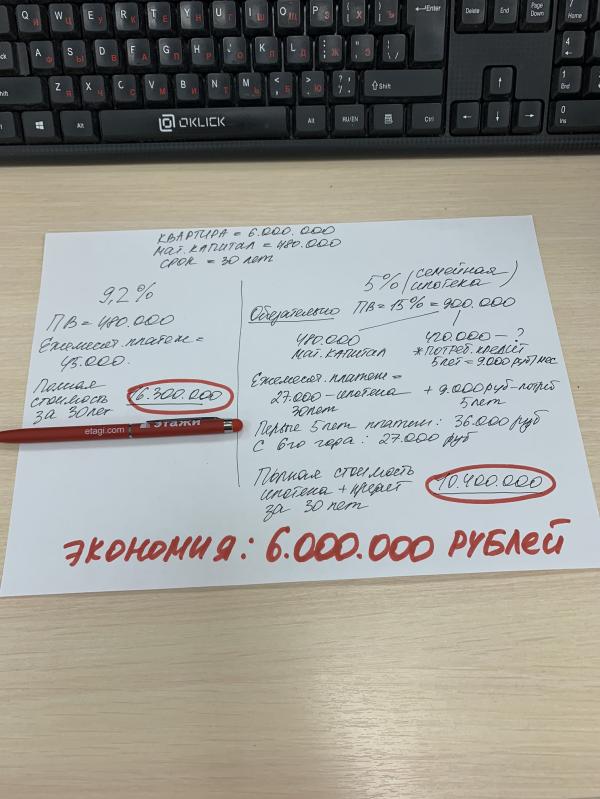 OKLICK
КВАРТИРА = 6.000.000
МАТ. КАПИТАЛ = 480.000
СРОК = 30 лет
9,2%
ПВ = 480.000
Ежемесят. платеж =
45.000.
Полная
стоимость
за 30 лет
16.300.000
etagi.com этажи
5% (семейная
ипотека)
Обязательно ПВ = 15% = 900.000
480.000
МАТ. КАПИТАЛ
420.000 - ?
*ПОТРЕБ. КРЕДИТ
5 лет = 9.000 руб/мес
Ежемесят. платеж =
27.000 - ипотека
30 лет
+ 9.000 руб - потреб
5 лет
Первые 5 лет платеж: 36.000 руб
С 6го года: 27.000 руб
Полная стоимость
ипотека + кредит
за 30 лет
10.400.000
ЭКОНОМИЯ: 6.000.000 РУБЛЕЙ